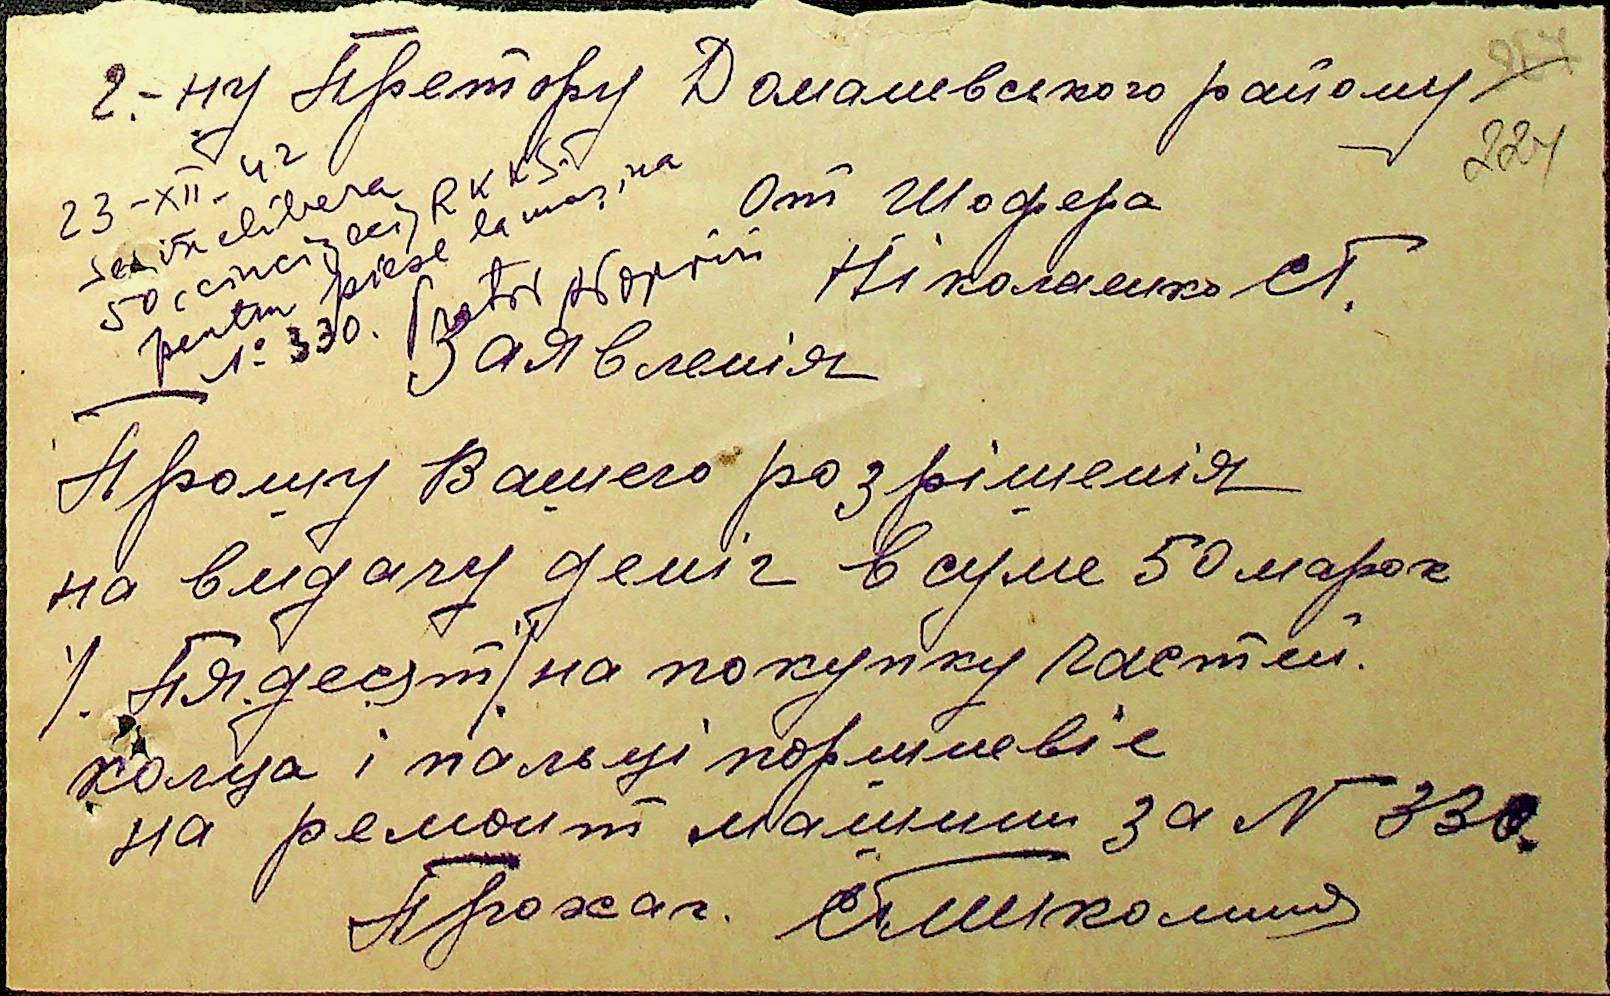 г.-ну Претору Домашевського району
224
23-XII-42
se va elibera
50 (cincizeci) RKKS.
pentru piese la mașina
№ 330. Pretor
От Шофера
Ніколаенко СТ.
Заявленія
Прошу Вашего розрішенія
на видачу деніг в суме 50 марок
/. Пядесят/ на покупку частей.
колца і пальці поршневіе
на ремонт машини за N 330.
Прохач.